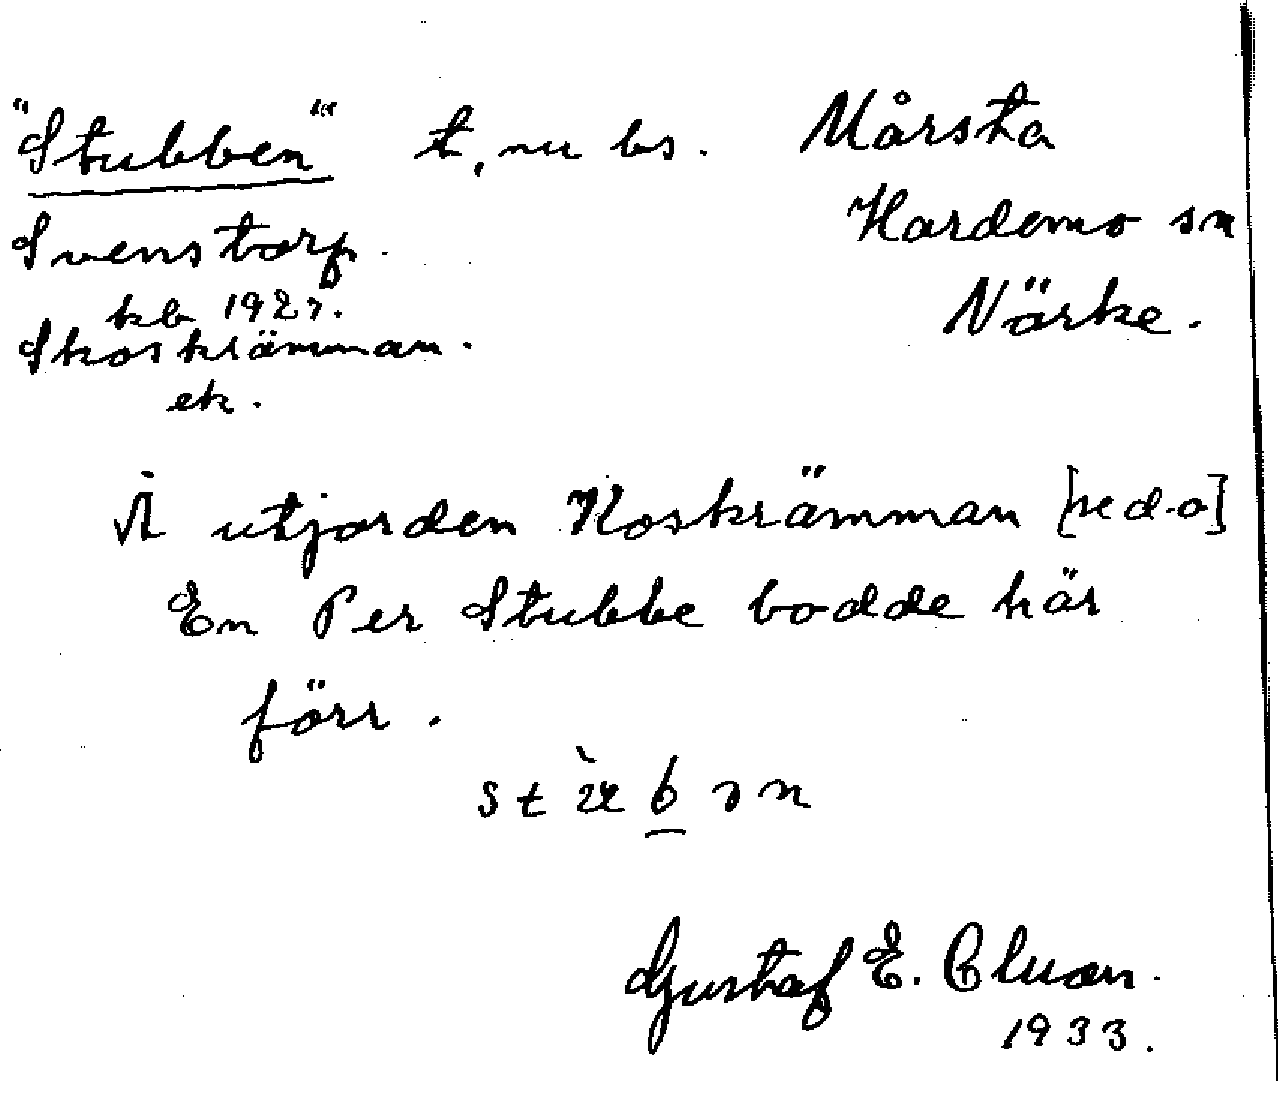 "Stubben" t, nu bs. Mårsta
Svenstorp. Hardemo sn
kb 1927. Närke.
Skoskrämman.
ek.
Å utjorden Koskrämman [ned-o]
En Per Stubbe bodde här
förr.
Gustaf E. Cluan.
1933.